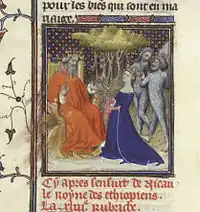 pour les bies qui sont en ma
riaige.
Cy apres sensuit de nicau
le royne des ethiopiens
La xliiie Rubriche.